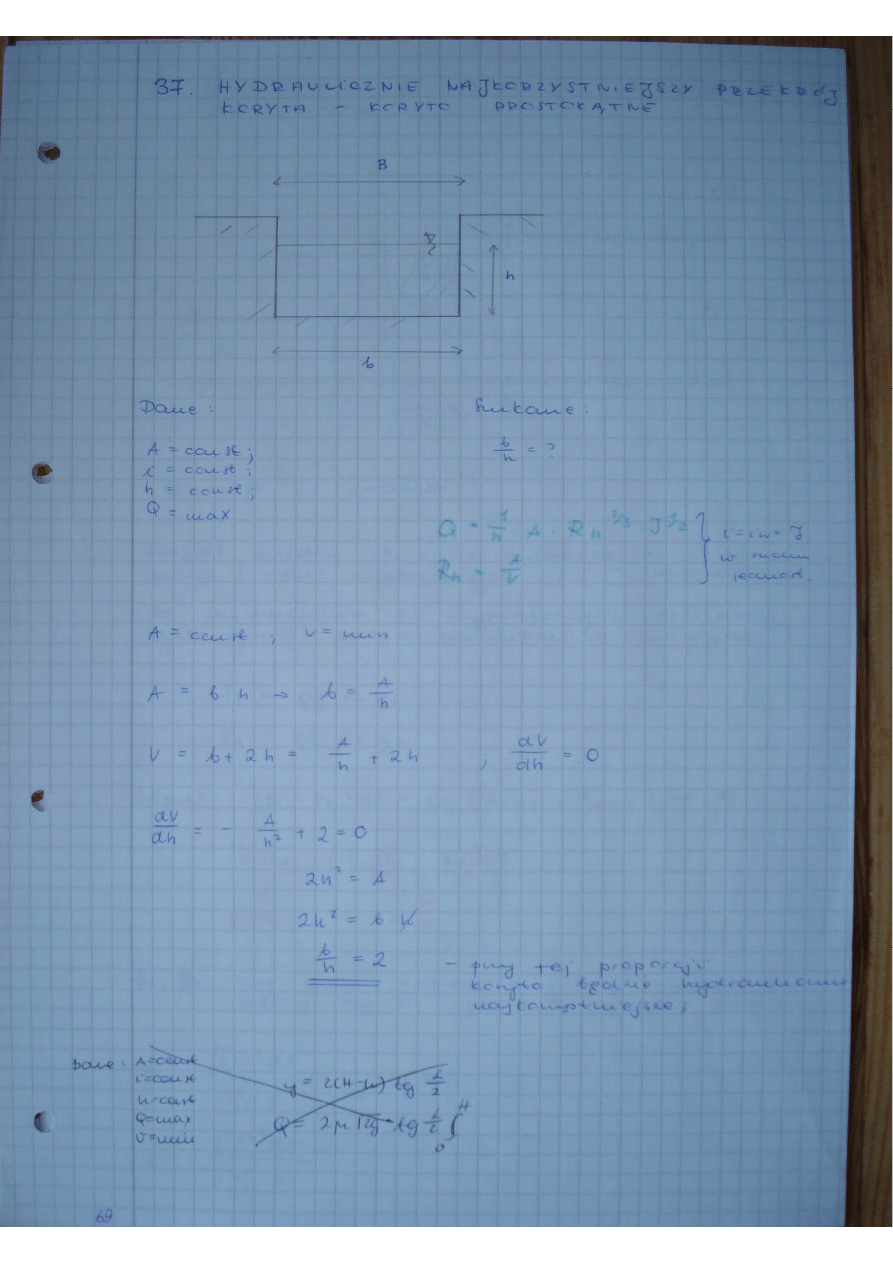 37. HYDRAULICZNIE NAJKORZYSTNIEJSZY PRZEKRÓJ
KORYTA - KORYTO PROSTOKĄTNE
B
h
b
Dane :
Szukane :
A = const ;
i = const ;
n = const ;
Q = max
b/h = ?
Q = 1/n A · Rh^2/3 J^1/2
Rh = A/U
i = iw = J
w ruchu
jednost.
A = const , U = min
A = b h → b = A/h
U = b + 2h = A/h + 2h ; dU/dh = 0
dU/dh = - A/h² + 2 = 0
2h² = A
2h² = b h
b/h = 2
- przy tej proporcji
koryto będzie hydraulicznie
najkorzystniejsze ;
Dane : A=const
i=const
n=const
Q=max
U=min
y = 2(H-h) tg α/2
Q = 2μ √2g tg α/2 ∫ H 0
69